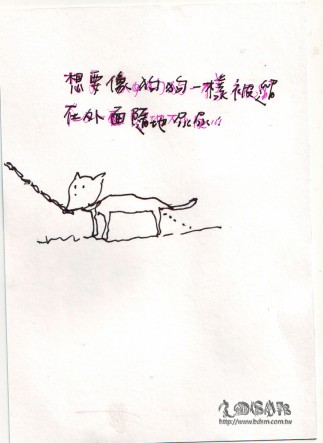 想要像狗狗一樣被
在外面隨地尿尿
http://www.bdsm.com.tw